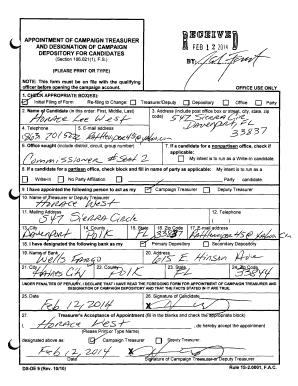 APPOINTMENT OF CAMPAIGN TREASURER
AND DESIGNATION OF CAMPAIGN
DEPOSITORY FOR CANDIDATES
(Section 106.021(1), F.S.)
(PLEASE PRINT OR TYPE)
NOTE: This form must be on file with the qualifying
officer before opening the campaign account.
RECEIVED
FEB 12 2014
BY:
OFFICE USE ONLY
1. CHECK APPROPRIATE BOX(ES):
Initial Filing of Form Re-filing to Change: Treasurer/Deputy Depository Office Party
2. Name of Candidate (in this order: First, Middle, Last)
Horace West
3. Address (include post office box or street, city, state, zip code)
547 Sierra Circle
Davenport, FL
33837
4. Telephone
5. E-mail address
6. Office sought (include district, circuit, group number)
Commissioner #Seat 2
7. If a candidate for a nonpartisan office, check if applicable:
My intent is to run as a Write-In candidate.
8. If a candidate for a partisan office, check block and fill in name of party as applicable: My intent is to run as a
Write-In No Party Affiliation Party candidate.
9. I have appointed the following person to act as my Campaign Treasurer Deputy Treasurer
10. Name of Treasurer or Deputy Treasurer
Horace West
11. Mailing Address
547 Sierra Circle
12. Telephone
13. City
Davenport
14. County
Polk
15. State
FL
16. Zip Code
33837
17. E-mail address
18. I have designated the following bank as my Primary Depository Secondary Depository
19. Name of Bank
Wells Fargo
20. Address
615 E Hinson Ave
21. City
Haines City
22. County
Polk
23. State
24. Zip Code
33844
UNDER PENALTIES OF PERJURY, I DECLARE THAT I HAVE READ THE FOREGOING FORM FOR APPOINTMENT OF CAMPAIGN TREASURER AND
DESIGNATION OF CAMPAIGN DEPOSITORY AND THAT THE FACTS STATED IN IT ARE TRUE.
25. Date
Feb 12, 2014
26. Signature of Candidate
X
27. Treasurer's Acceptance of Appointment (fill in the blanks and check the appropriate block)
I, Horace West, do hereby accept the appointment
(Please Print or Type Name)
designated above as: Campaign Treasurer Deputy Treasurer.
Feb 12, 2014
X
Date
Signature of Campaign Treasurer or Deputy Treasurer
DS-DE 9 (Rev. 10/10)
Rule 1S-2.0001, F.A.C.